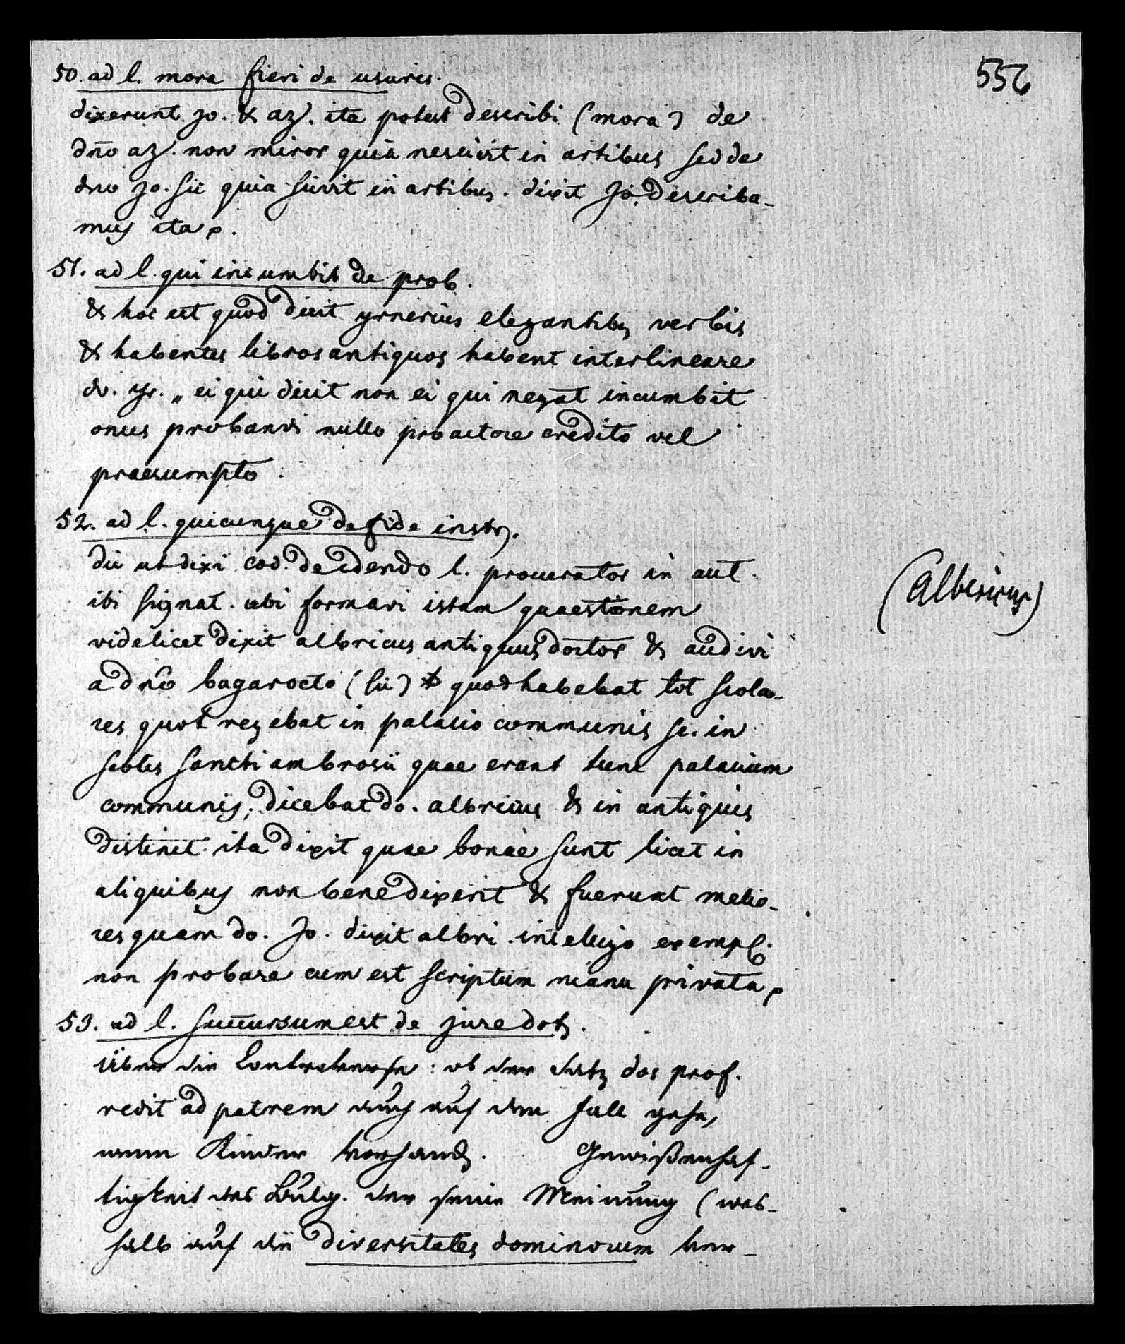 556
50. ad l. mora fieri de usuris.
dixerunt Jo. & az. ita potest describi (mora) de
dno az. non miror quia nescivit in artibus sed de
dno Jo. sic quia scivit in artibus. dixit Jo. describa-
mus ita
51. ad l. qui incumbit de prob.
& hoc est quod dixit yrnerius elegantibus verbis
& habentes libros antiquos habent interlineare
do. yr. „ ei qui dicit non ei qui negat incumbit
onus probandi nullo pro actore credito vel
praesumpto.
52. ad l. quicunque de fide instr.
dic ut dixi cod de edendo l. procurator in aut.
ibi signat. ubi formavi istam quaestionem
videlicet dixit albricus antiquus doctor & audivi
a dno bagarocto (sic) quod habebat tot scola-
res quot regebat in palatio communis sc. in
scolis sancti ambrosii quae erant tunc palatium
communis; dicebat do. albricus & in antiquis
distinct. ita dixit quae bonae sunt licet in
aliquibus non bene dixerit & fuerunt melio-
res quam do. Jo. dixit albri. exempl.
non probare cum est scriptum manu privata
(Albericus)
53. ad l. succursum est de jure dot.
Über die Controverse: ob der Satz dos prof.
redit ad patrem auch auf den Fall gehe,
wenn Kinder vorhand. Gewißenhaf-
tigkeit des Bulg. der seine Meinung (wes-
halb auf die diversitates dominorum ver-